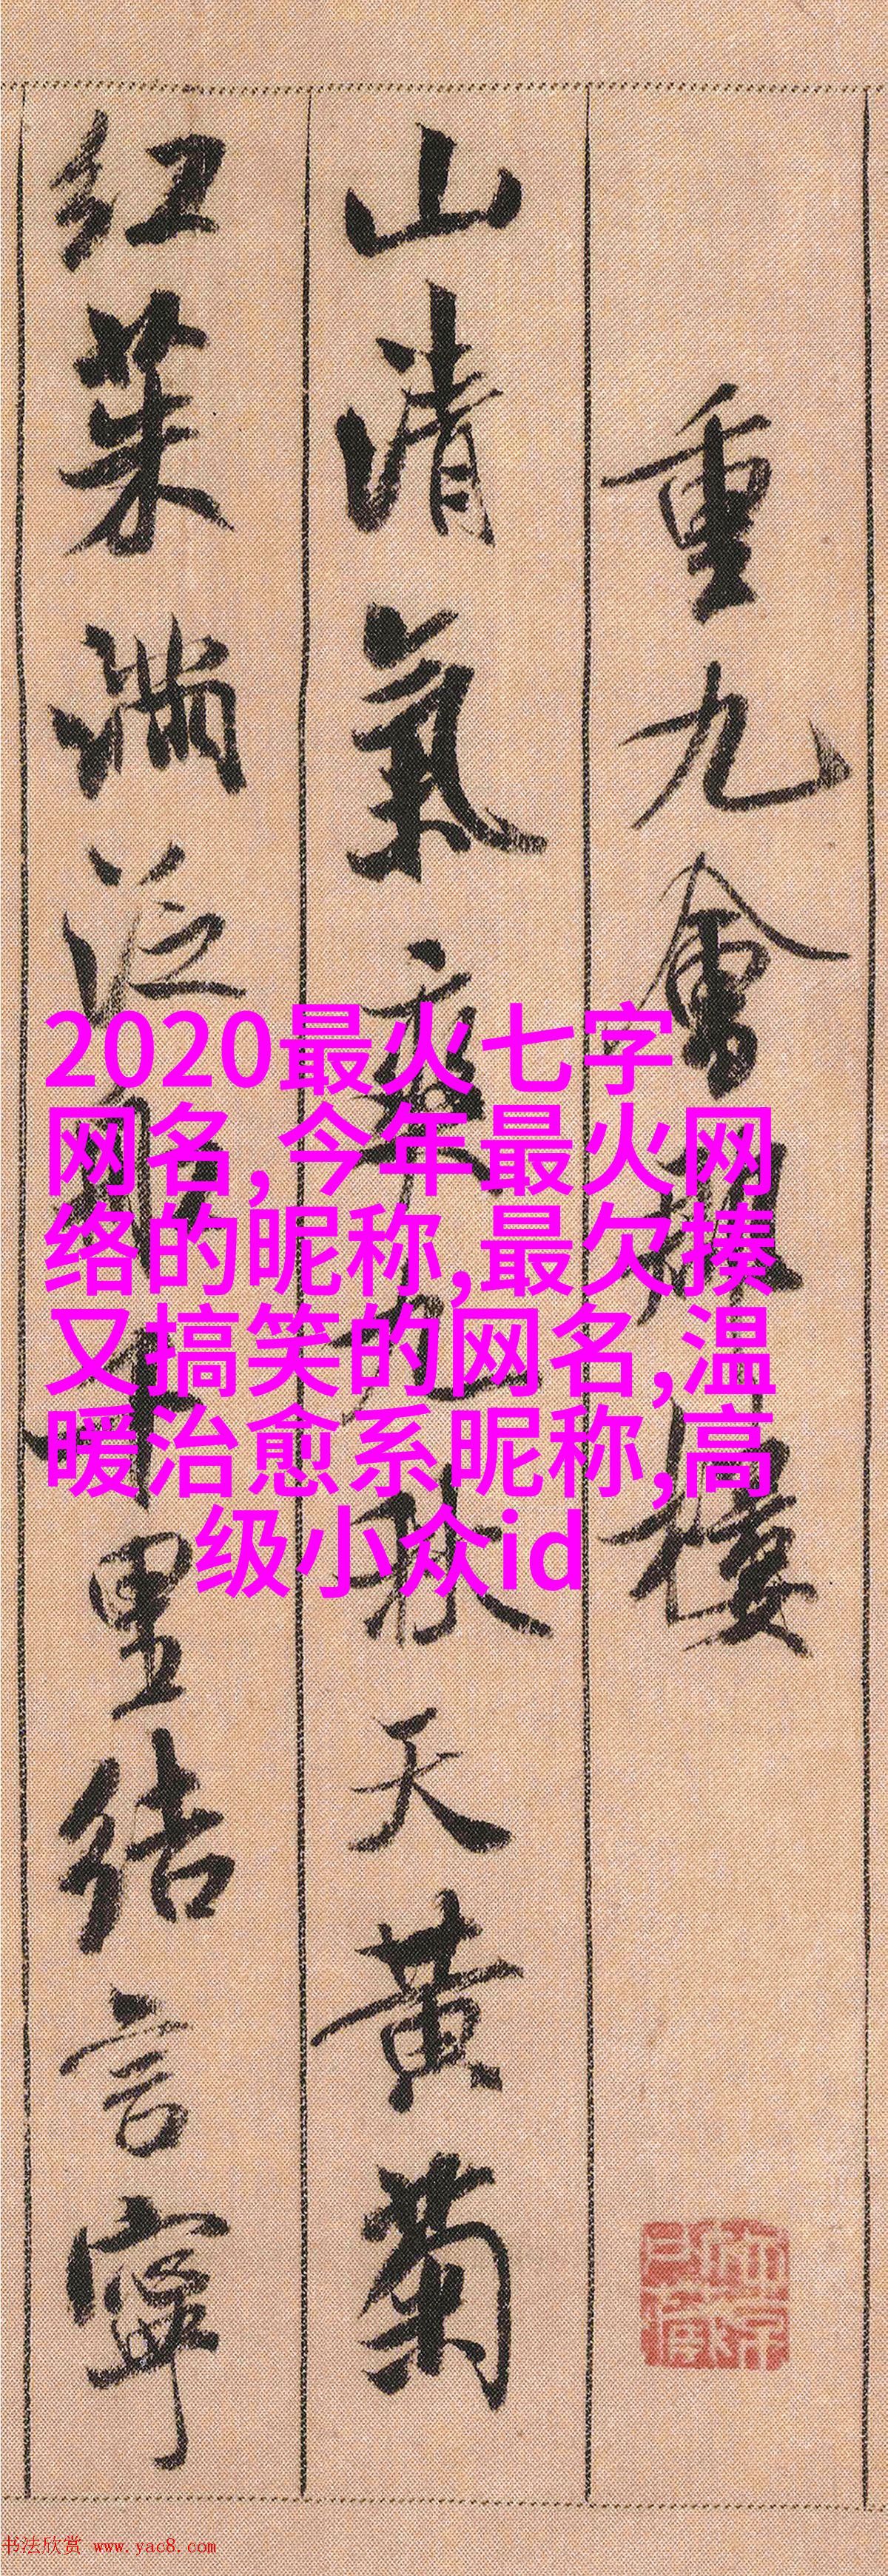 重九會郡樓
山清氣爽九秋天黃菊
紅茱滿泛船千里結言寧
2020最火七字
网名,今年最火网
络的昵称,最欠揍
又搞笑的网名,温
暖治愈系昵称,高
级小众id
书法欣赏 www.yac8.com